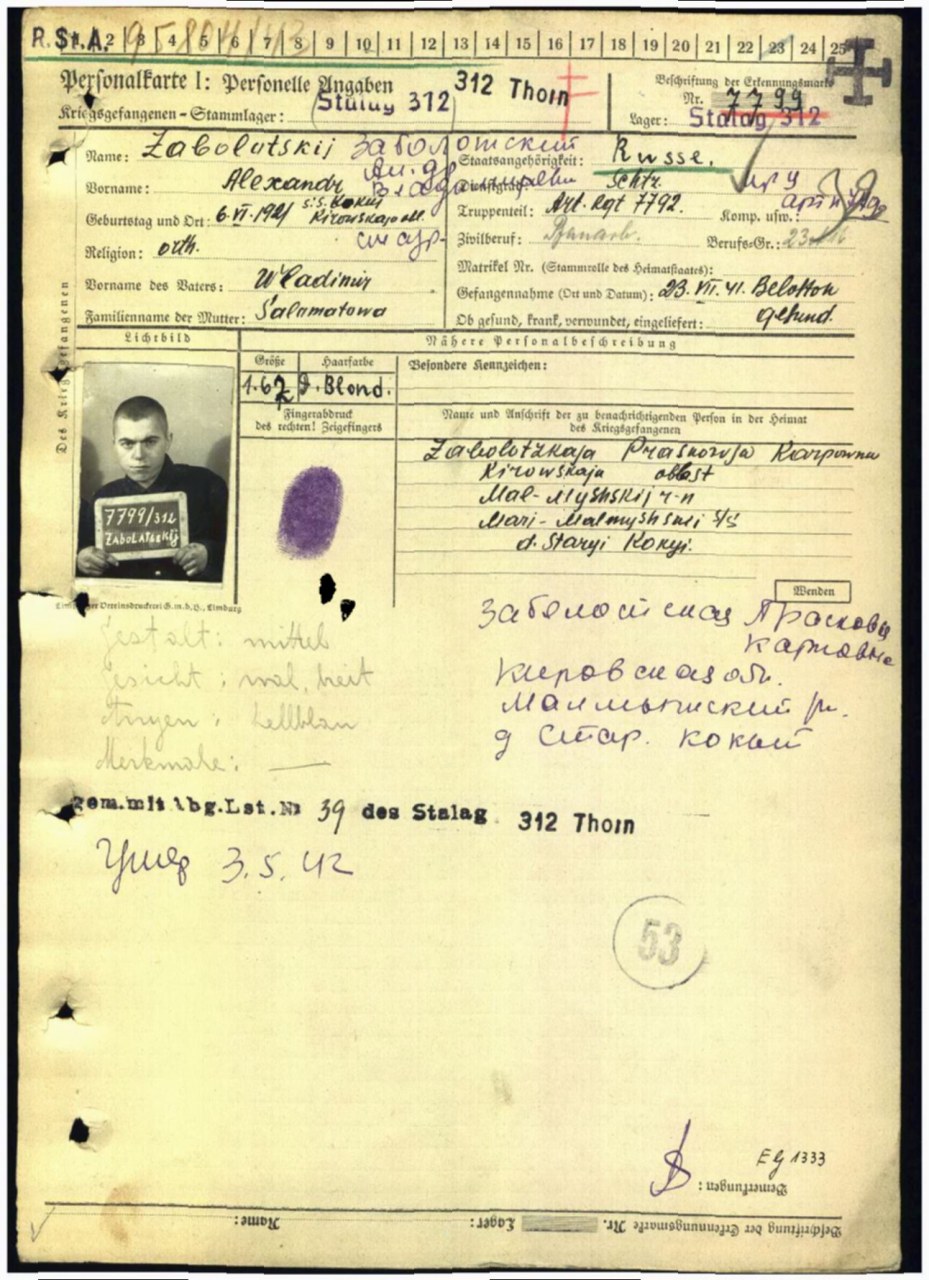 R.St.A. 2 3 4 5 6 7 8 9 10 11 12 13 14 15 16 17 18 19 20 21 22 23 24 25
Personalkarte I: Personelle Angaben
Kriegsgefangenen-Stammlager: Stalag 312
312 Thorn
Beschriftung der Erkennungsmarke
Nr. 7799
Lager: Stalag 312
Des Kriegsgefangenen
Name: Zabolotskij Заболотский
Vorname: Alexandr
Geburtstag und Ort: 6.VI.1921 s.S. Kokui
Kirowskaja obl.
Religion: orth.
Vorname des Vaters: Wladimir
Familienname der Mutter: Salamatowa
Staatsangehörigkeit: Russe.
Dienstgrad: Schtz.
Truppenteil: Art. Rgt 7792. Komp. usw.:
Zivilberuf: Berufs-Gr.: 23
Matrikel Nr. (Stammrolle des Heimatstaates):
Gefangennahme (Ort und Datum): 23.VII.41. Belostok
Ob gesund, krank, verwundet, eingeliefert: gesund.
Lichtbild
Nähere Personalbeschreibung
Größe Haarfarbe
1.67 d. Blond.
Besondere Kennzeichen:
Fingerabdruck
des rechten! Zeigefingers
7799/312
ZABOLATSKIJ
Name und Anschrift der zu benachrichtigenden Person in der Heimat
des Kriegsgefangenen
Zabolotzkaja Praskowja Karpowna
Kirowskaja oblast
Mal-Myshskij r-n
Mari-Malmyshskij s/s
d. Staryi Kokyi.
Limburger Vereinsdruckerei G.m.b.H., Limburg
Wenden
Gestalt: mittel
Gesicht: oval, breit
Augen: hellblau
Merkmale: —
Заболотская Прасковья
Карповна
Кировская обл.
Малмыжский р.
д Стар. Кокый
gem. mit Abg. Lst. № 39 des Stalag 312 Thorn
Умер 3.5.42
53
EG 1333
Bemerkungen:
Beschriftung der Erkennungsmarke Nr. Lager: Name: